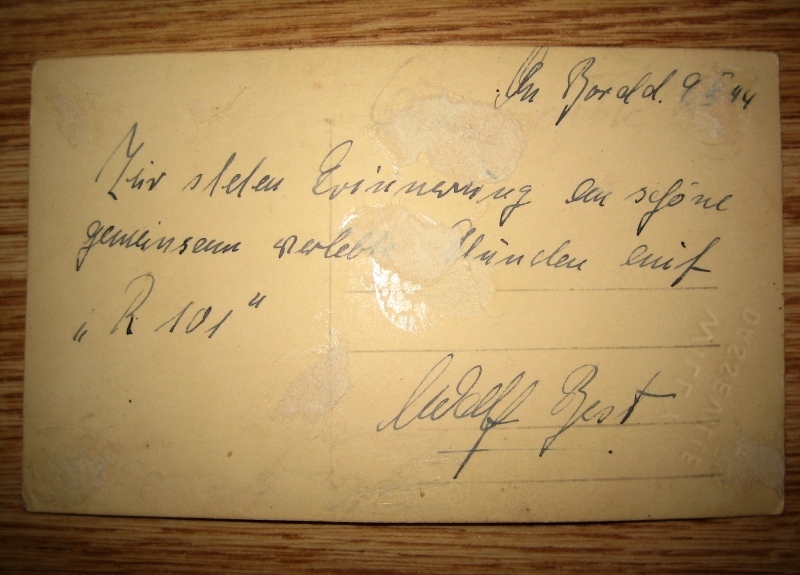 An Bord d. 9. 44
Zur steten Erinnerung an schöne
gemeinsam verlebte Stunden auf
„R 101"
Adolf Best